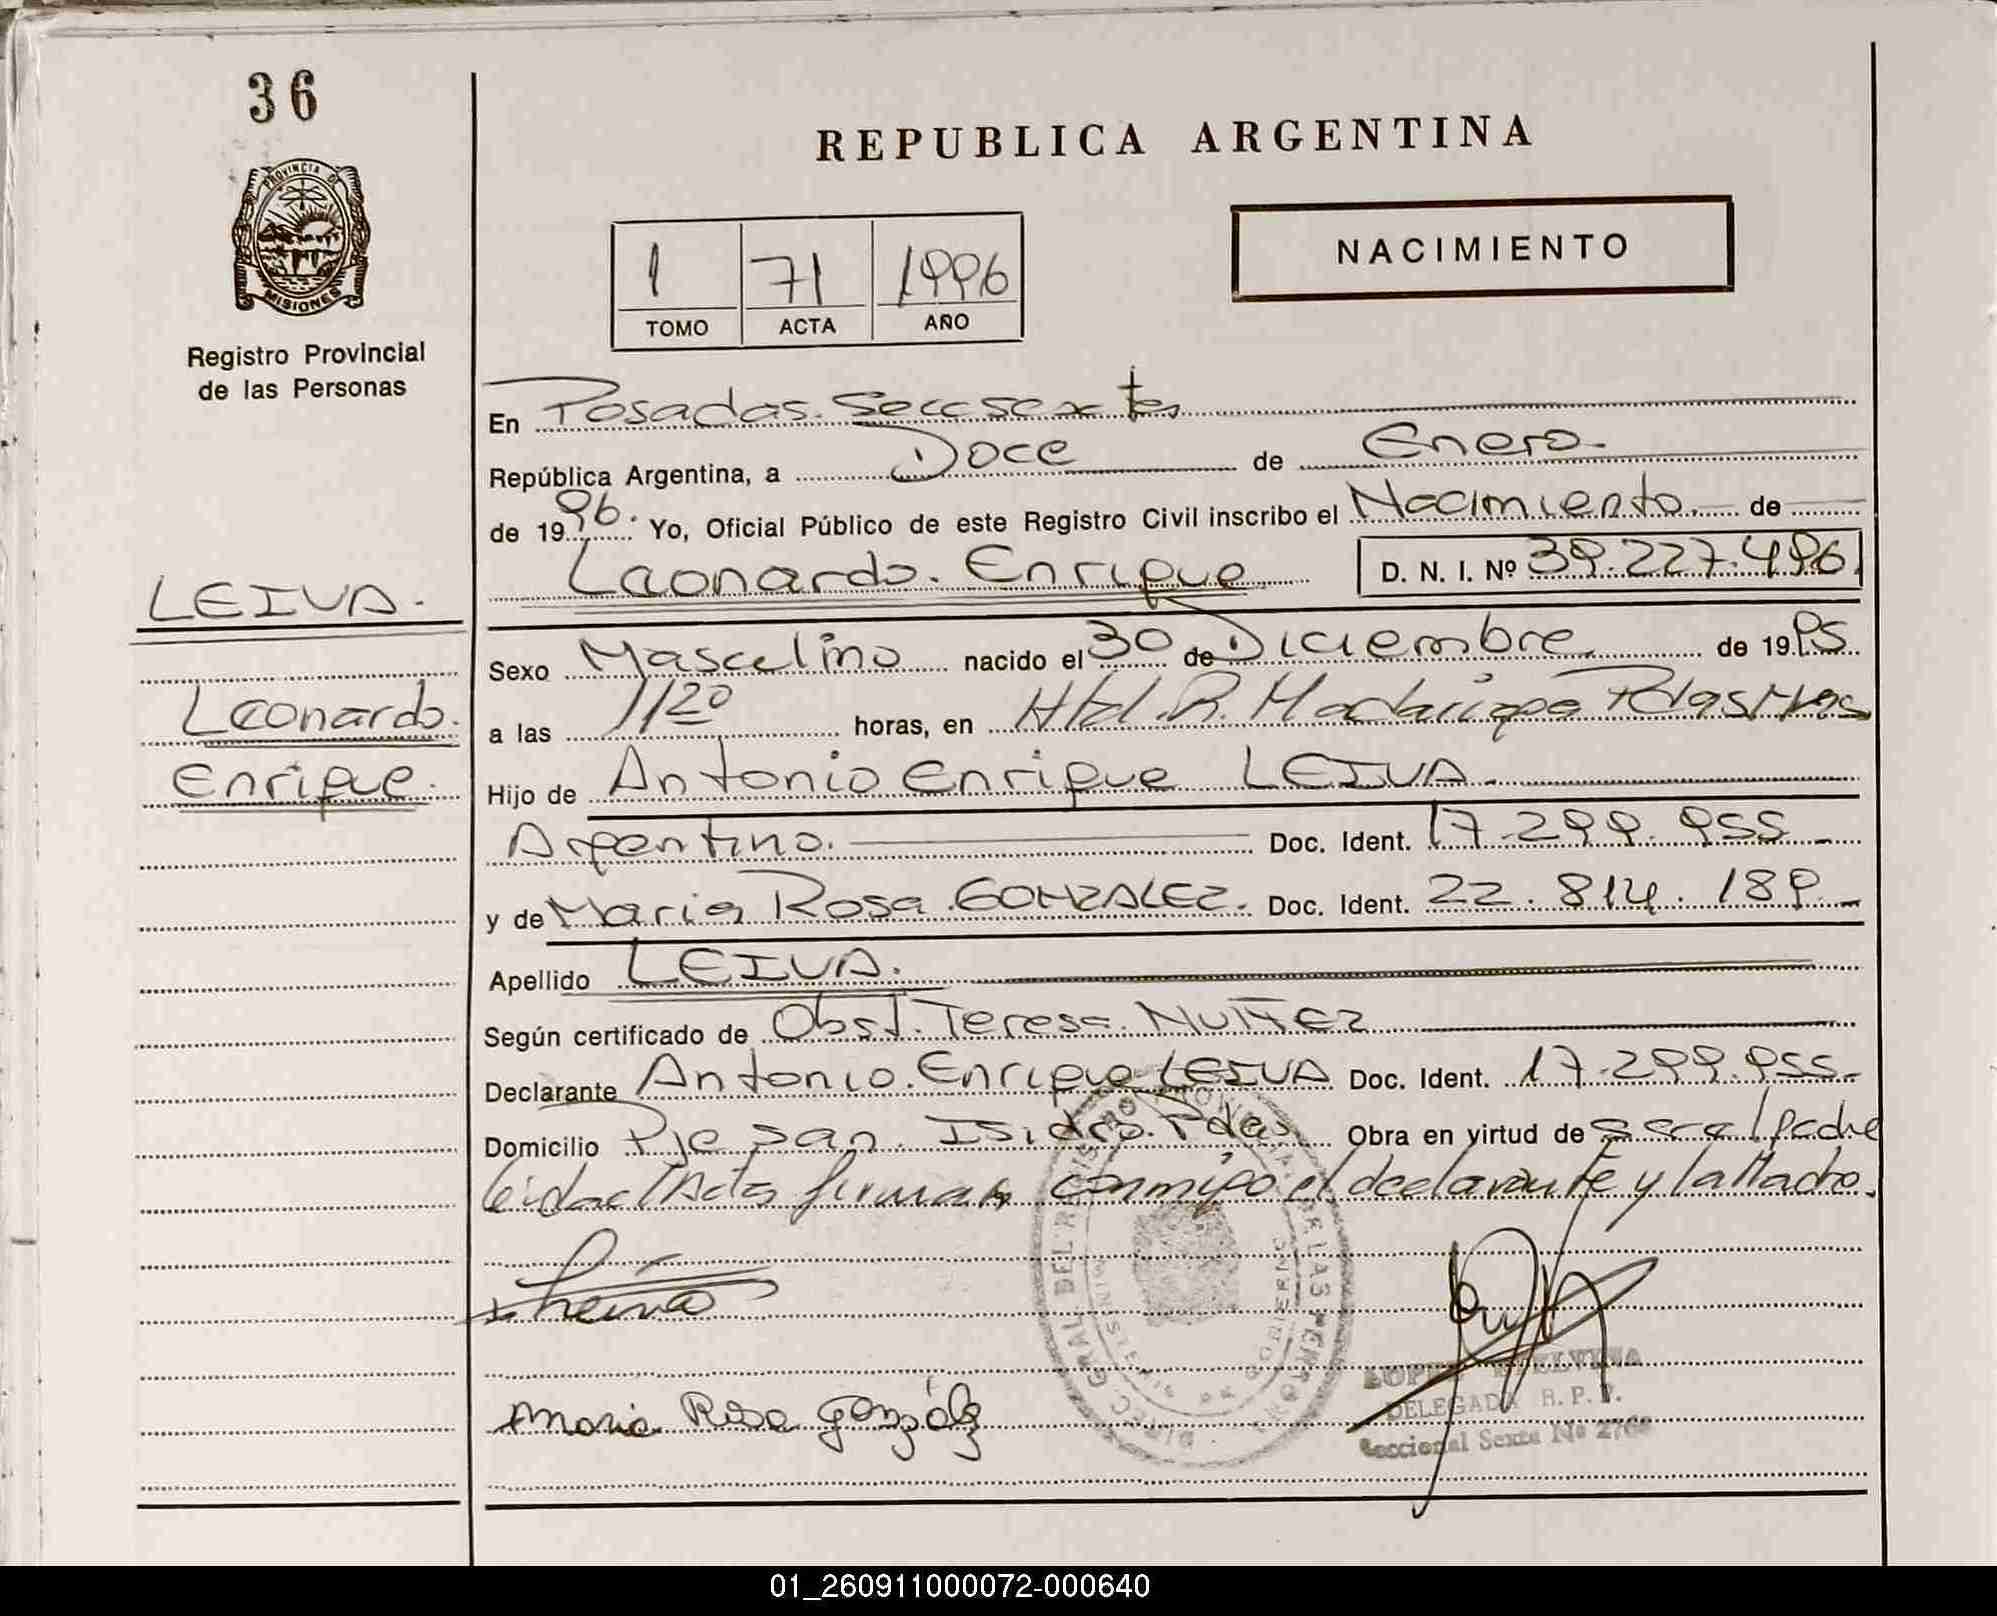 36
PROVINCIA DE
MISIONES
Registro Provincial
de las Personas
REPUBLICA ARGENTINA
NACIMIENTO
1 71 1996
TOMO ACTA AÑO
En Posadas. Secc sexta
República Argentina, a Doce de Enero.
de 1996. Yo, Oficial Público de este Registro Civil inscribo el Nacimiento. de
Leonardo. Enrique D. N. I. Nº 39.227.496.
LEIVA.
Leonardo.
Enrique.
Sexo Masculino nacido el 30 de Diciembre de 1995.
a las 1120 horas, en Htal. R. Madariaga
Hijo de Antonio Enrique LEIVA.
Argentino. Doc. Ident. 17.299.955
y de Maria Rosa GONZALEZ. Doc. Ident. 22.814.189.
Apellido LEIVA.
Según certificado de Obst. Teresa. NUÑEZ
Declarante Antonio. Enrique LEIVA Doc. Ident. 17.299.955.
Domicilio Pje San. Isidro. Pdas Obra en virtud de ser el padre
Leida el Acta firman conmigo el declarante y la Madre.
Leiva
Maria Rosa González
DIREC. GRAL. DEL REGISTRO PROVINCIAL DE LAS PERSONAS
MINISTERIO DE GOBIERNO
DELEGADA R. P. P.
Seccional Sexta Nº
01_260911000072-000640